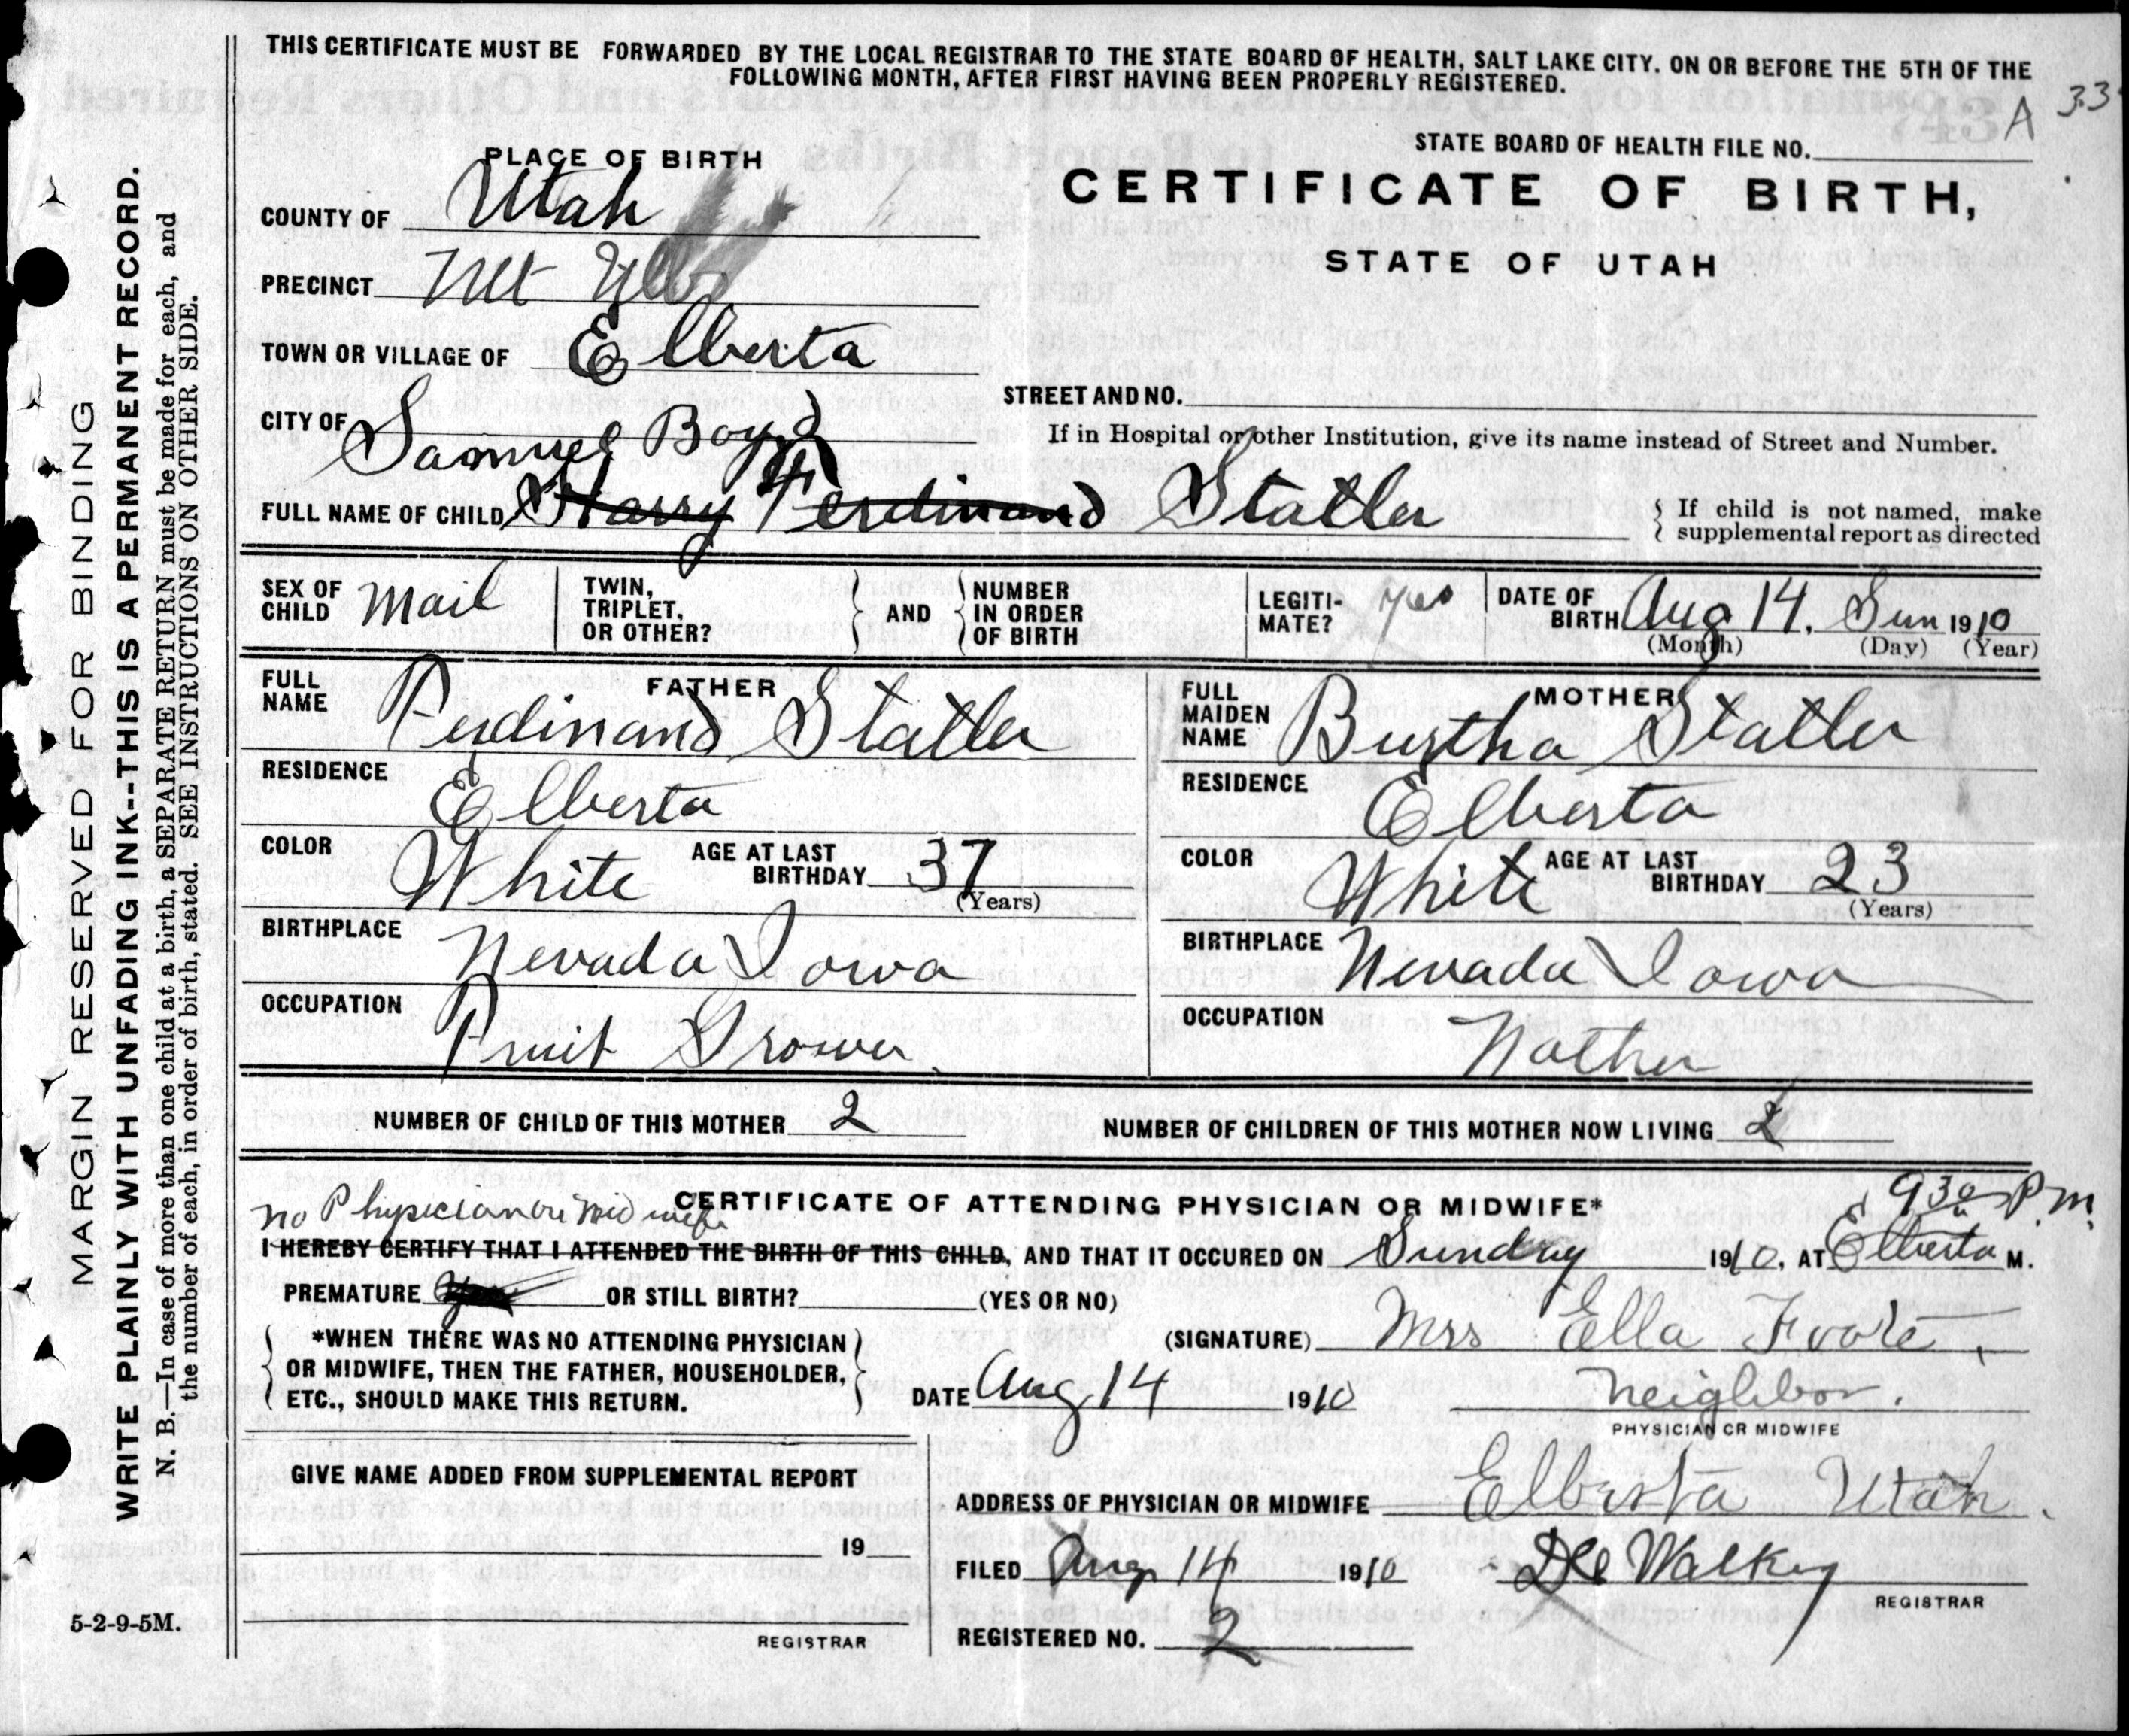 THIS CERTIFICATE MUST BE FORWARDED BY THE LOCAL REGISTRAR TO THE STATE BOARD OF HEALTH, SALT LAKE CITY. ON OR BEFORE THE 5TH OF THE
FOLLOWING MONTH, AFTER FIRST HAVING BEEN PROPERLY REGISTERED.
A 33
STATE BOARD OF HEALTH FILE NO.
CERTIFICATE OF BIRTH,
STATE OF UTAH
PLACE OF BIRTH
COUNTY OF Utah
PRECINCT Mt
TOWN OR VILLAGE OF Elberta
STREET AND NO.
CITY OF
If in Hospital or other Institution, give its name instead of Street and Number.
Samuel Boyd
FULL NAME OF CHILD Harry Ferdinand Statler
If child is not named, make
supplemental report as directed
SEX OF CHILD Mail
TWIN, TRIPLET, OR OTHER?
AND
NUMBER IN ORDER OF BIRTH
LEGITI-MATE? yes
DATE OF BIRTH Aug 14. Sun 1910
(Month) (Day) (Year)
FATHER
FULL NAME Ferdinand Statler
RESIDENCE Elberta
COLOR White AGE AT LAST BIRTHDAY 37
(Years)
BIRTHPLACE Nevada Iowa
OCCUPATION Fruit Grower
MOTHER
FULL MAIDEN NAME Burtha Statler
RESIDENCE Elberta
COLOR White AGE AT LAST BIRTHDAY 23
(Years)
BIRTHPLACE Nevada Iowa
OCCUPATION Mother
NUMBER OF CHILD OF THIS MOTHER 2
NUMBER OF CHILDREN OF THIS MOTHER NOW LIVING 2
CERTIFICATE OF ATTENDING PHYSICIAN OR MIDWIFE*
no Physician or Mid wife
930 P.m.
I HEREBY CERTIFY THAT I ATTENDED THE BIRTH OF THIS CHILD, AND THAT IT OCCURED ON Sunday 1910, AT Elberta M.
PREMATURE Yes OR STILL BIRTH? (YES OR NO)
*WHEN THERE WAS NO ATTENDING PHYSICIAN
OR MIDWIFE, THEN THE FATHER, HOUSEHOLDER,
ETC., SHOULD MAKE THIS RETURN.
(SIGNATURE) Mrs Ella Foote
DATE Aug 14 1910
Neighbor.
PHYSICIAN OR MIDWIFE
GIVE NAME ADDED FROM SUPPLEMENTAL REPORT
19
REGISTRAR
ADDRESS OF PHYSICIAN OR MIDWIFE Elberta Utah.
FILED Aug 14 1910 Walker
REGISTRAR
REGISTERED NO. 2
5-2-9-5M.
MARGIN RESERVED FOR BINDING
WRITE PLAINLY WITH UNFADING INK--THIS IS A PERMANENT RECORD.
N. B.—In case of more than one child at a birth, a SEPARATE RETURN must be made for each, and
the number of each, in order of birth, stated. SEE INSTRUCTIONS ON OTHER SIDE.